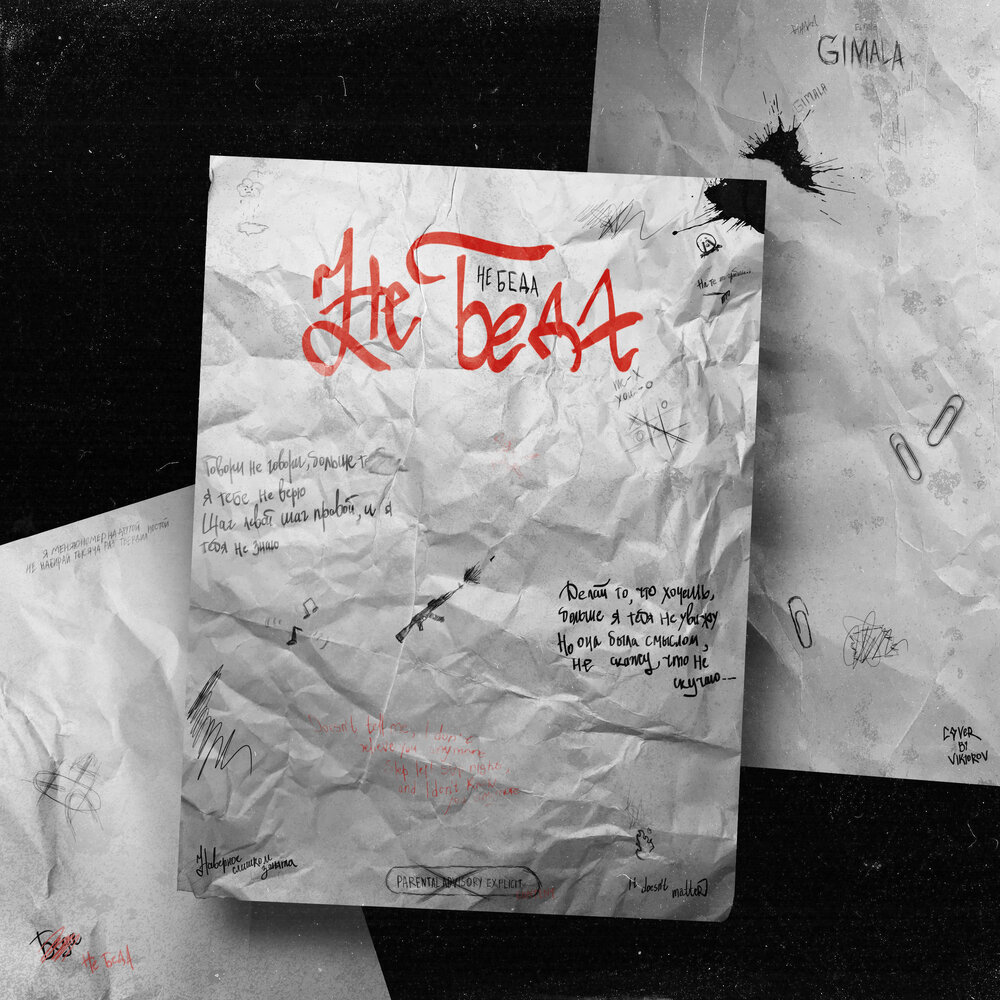 GIMALA
GIMALA
Не Беда
НЕ БЕДА
Говори не говори, больше
я тебе не верю
Шаг левой шаг правой, и я
тебя не знаю
Я МЕНЯЮ НОМЕР НА ДРУГОЙ,
НЕ НАБИРАЙ ТЫСЯЧА РАЗ
Делай то, что хочешь,
больше я тебя не увижу
Но она была смыслом,
не скажу, что не
скучаю...
Doesn't tell me, I don't
believe you anymore
Step left step right,
and I don't know
COVER
BY
VIKTOROV
Наверное
слишком
занята
PARENTAL ADVISORY EXPLICIT
It doesn't matter
Беда
Не Беда